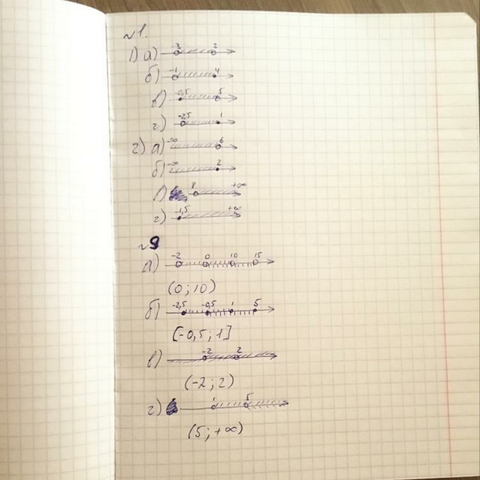 №1.
1) а) -3 2
б) -1 4
в) -0,5 5
г) -2,5 1
2) а) -∞ 6
б) -∞ 2
в) 8 +∞
г) -1,5 +∞
№9
а) -2 0 10 15
(0; 10)
б) -2,5 -0,5 1 5
[-0,5; 1]
в) -2 2
(-2; 2)
г) 1 5
(5; +∞)